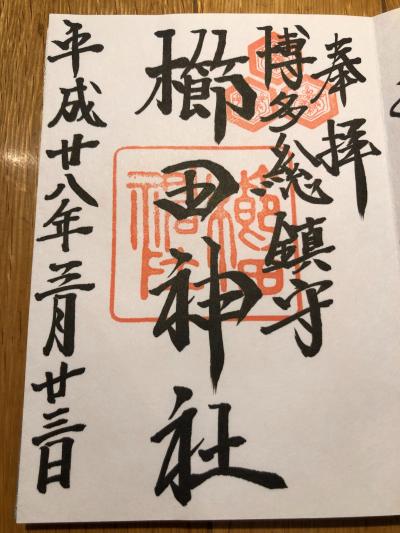 奉拝
博多総鎮守
櫛田神社
平成廿八年三月廿三日